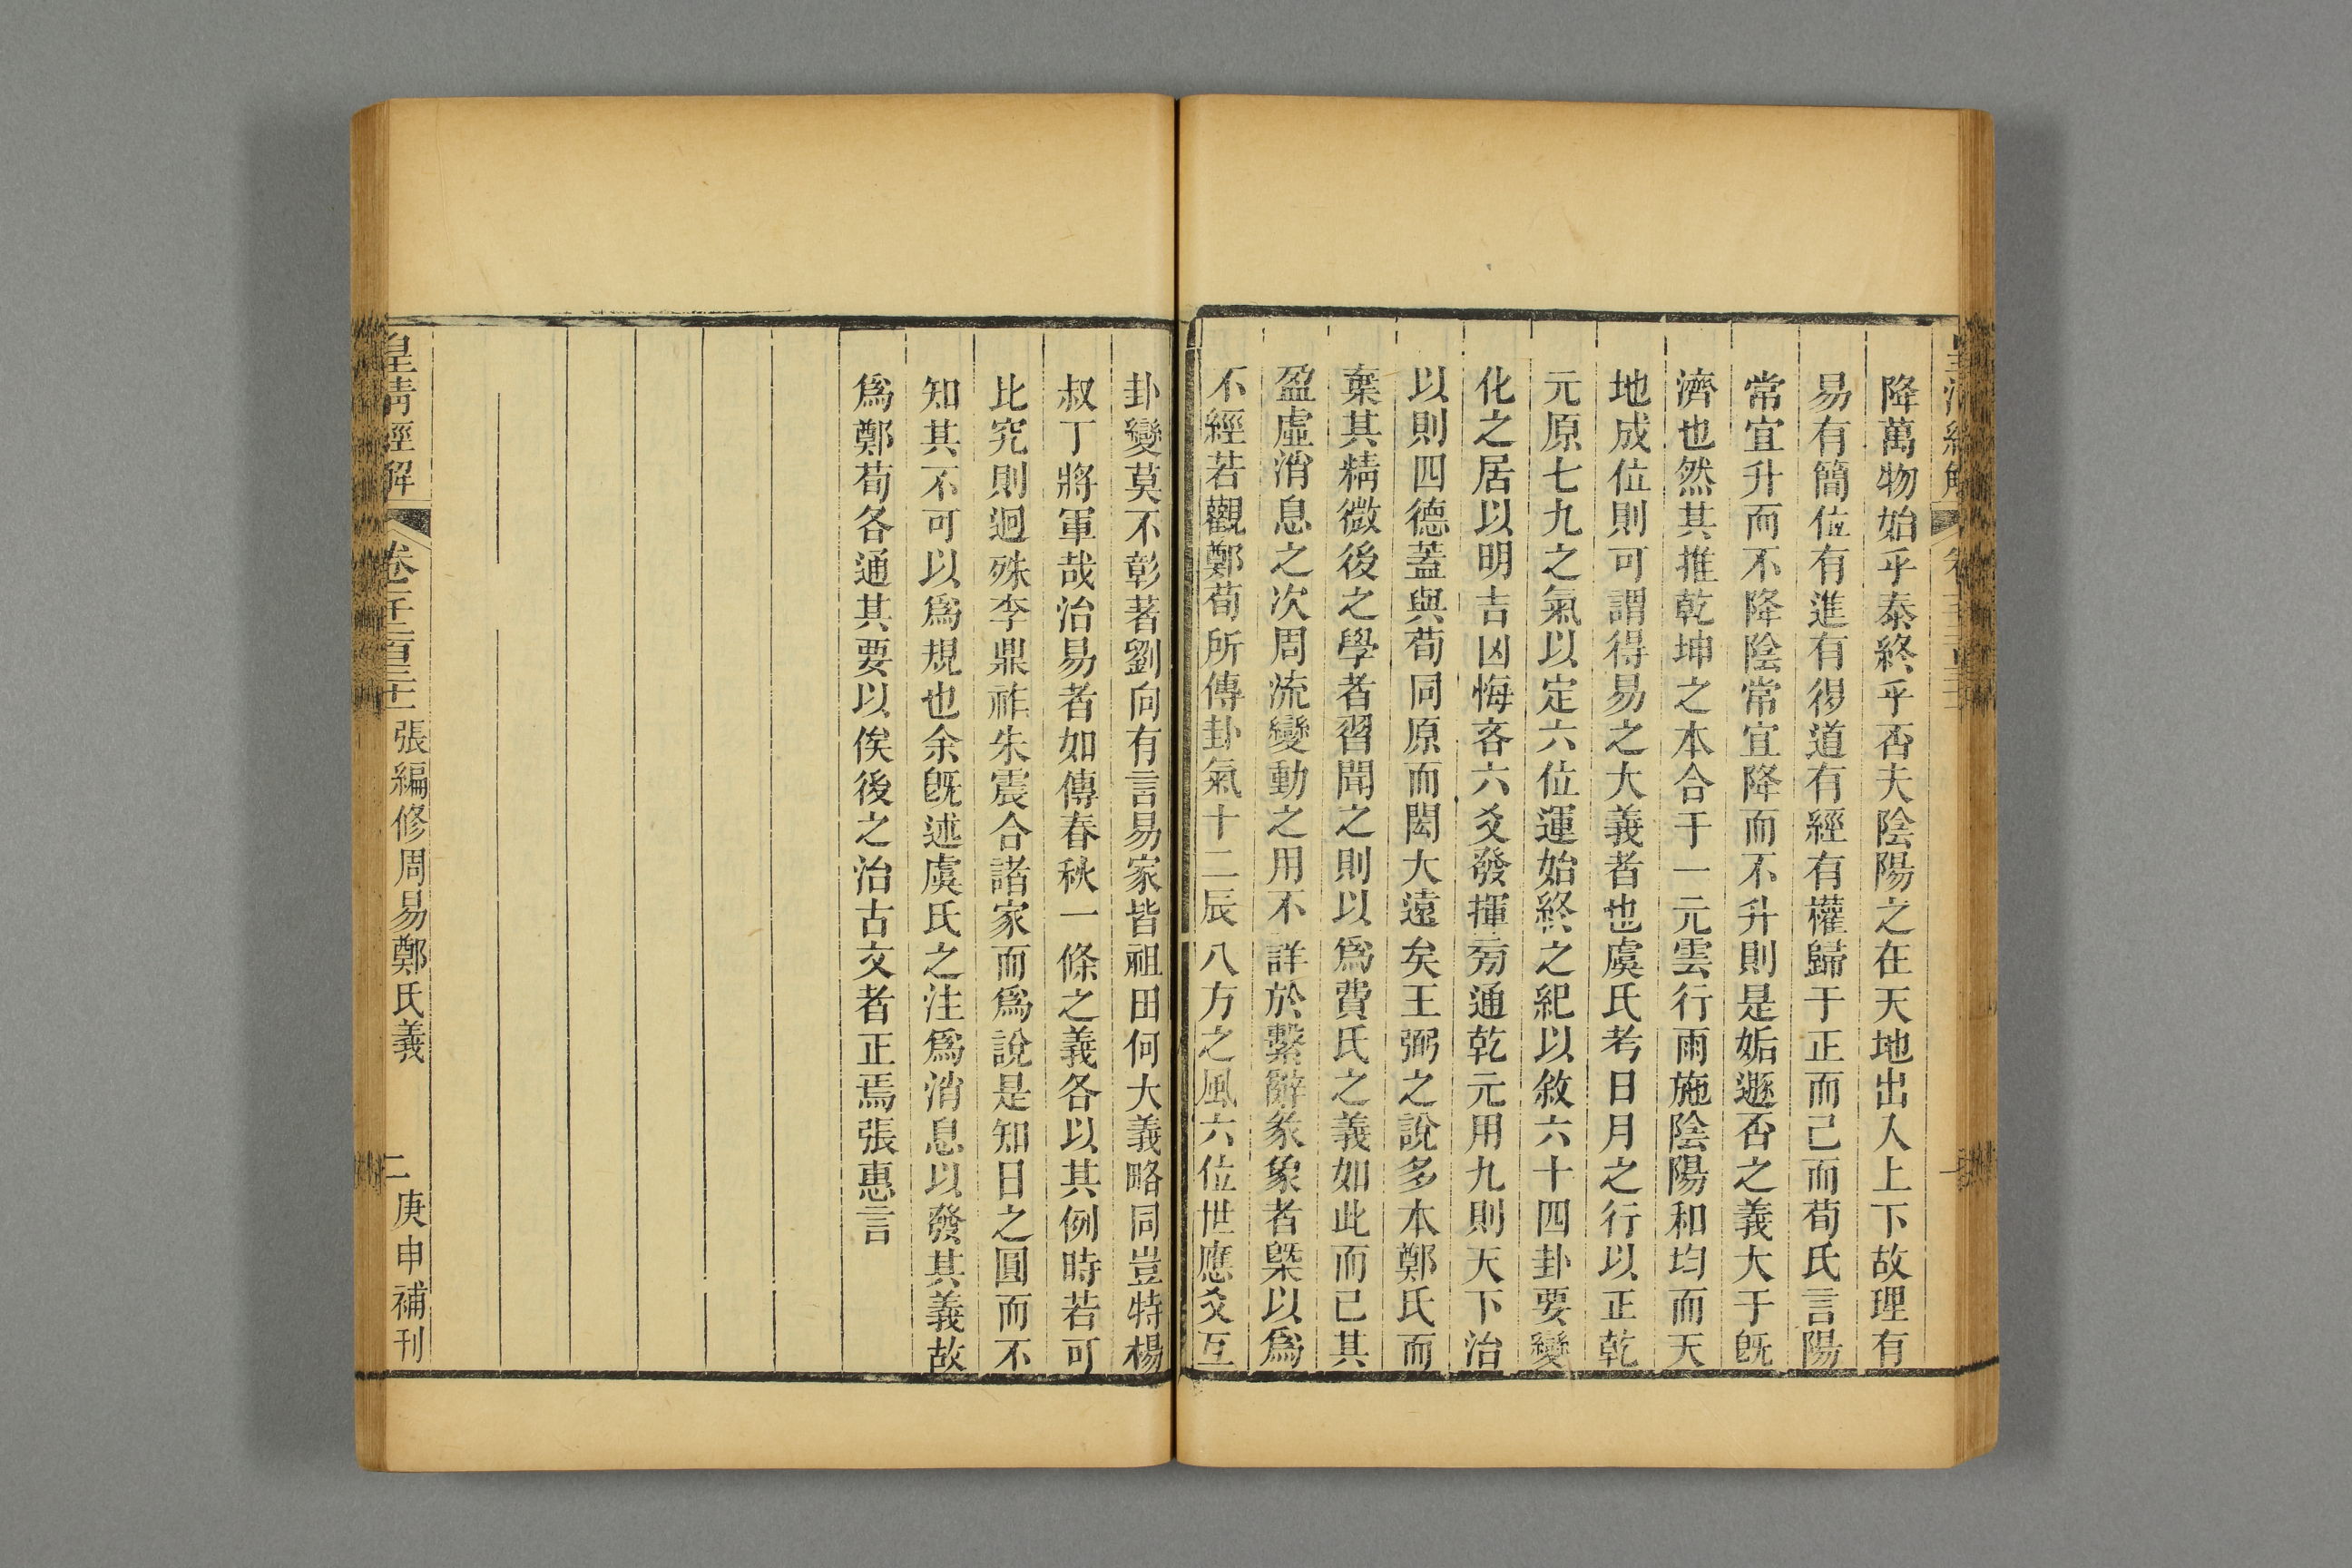 降萬物始乎泰終乎否夫陰陽之在天地出入上下故理有
易有簡位有進有得道有經有權歸于正而已而荀氏言陽
常宜升而不降陰常宜降而不升則是姤遯否之義大于既
濟也然其推乾坤之本合于一元雲行雨施陰陽和均而天
地成位則可謂得易之大義者也虞氏考日月之行以正乾
元原七九之氣以定六位運始終之紀以敘六十四卦要變
化之居以明吉凶悔吝六爻發揮旁通乾元用九則天下治
以則四德蓋與荀同原而閎大遠矣王弼之說多本鄭氏而
棄其精微後之學者習聞之則以爲費氏之義如此而已其
盈虛消息之次周流變動之用不詳於繫辭彖象者槩以爲
不經若觀鄭荀所傳卦氣十二辰八方之風六位世應爻互
卦變莫不彰著劉向有言易家皆祖田何大義略同豈特楊
叔丁將軍哉治易者如傳春秋一條之義各以其例時若可
比究則迥殊李鼎祚朱震合諸家而爲說是知日之圓而不
知其不可以爲規也余既述虞氏之注爲消息以發其義故
爲鄭荀各通其要以俟後之治古文者正焉張惠言
皇清經解
卷一千二百三十一
張編修周易鄭氏義
二
庚申補刊